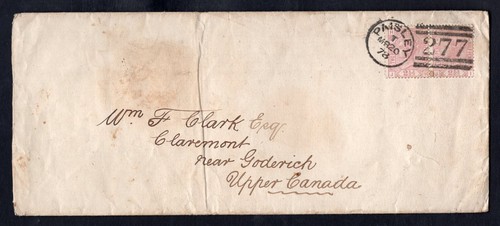 PAISLEY
T
MR 20
78
277
Wm F Clark Esq.
Claremont
near Goderich
Upper Canada